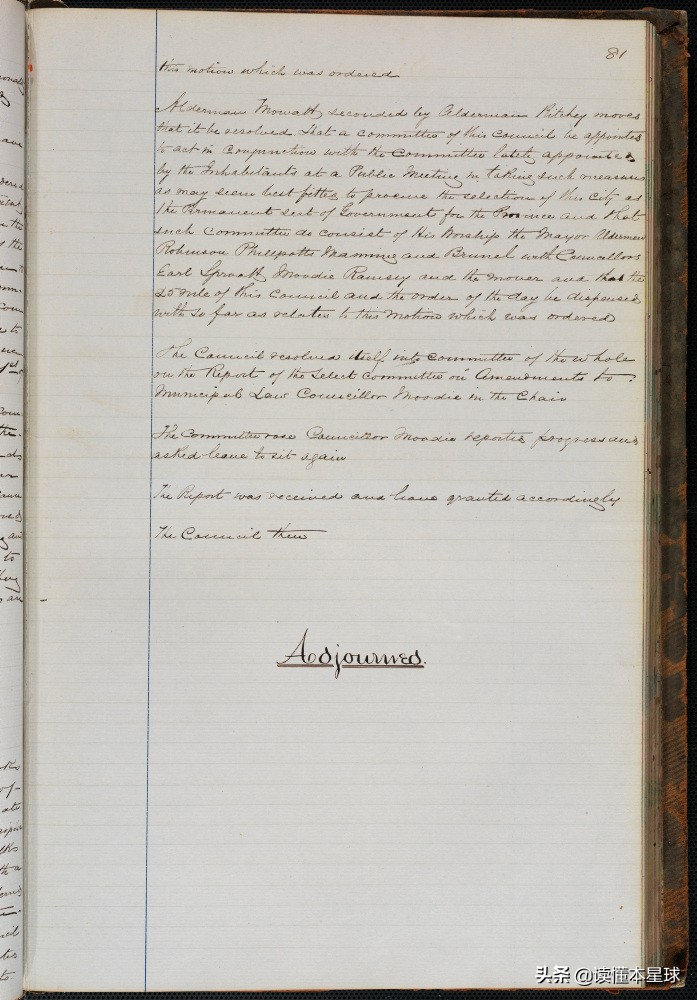 81
this motion which was ordered
Alderman Mowatt seconded by Alderman Ritchey moves
that it be resolved that a committee of this Council be appointed
to act in conjunction with the Committee lately appointed
by the Inhabitants at a Public Meeting in taking such measures
as may seem best fitted to procure the selection of this City as
the Permanent seat of Government for the Province and that
such Committee do consist of His Worship the Mayor Aldermen
Robinson Phillpotts Manning and Brunel with Councillors
Earl Sproatt Moodie Ramsey and the mover and that the
25 rule of this Council and the order of the day be dispensed
with so far as relates to this motion which was ordered
The Council resolved itself into committee of the whole
on the Report of the Select Committee on Amendments to
Municipal Law Councillor Moodie in the Chair
The Committee rose Councillor Moodie reported progress and
asked leave to sit again
The Report was received and leave granted accordingly
The Council then
Adjourned.
头条 @读懂本星球